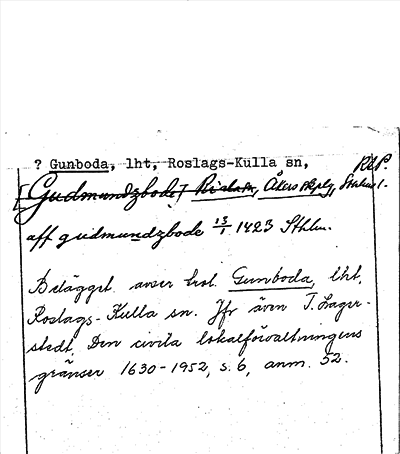 ? Gunboda, lht, Roslags-Kulla sn,
RAP.
[Gudmundzbode] Åkers skplg, Sthlms l.
aff gudmundzbode 13/1 1423 Sthlm.
Belägget avser trol. Gunboda, lht,
Roslags-Kulla sn. Jfr även T. Lager-
stedt, Den civila lokalförvaltningens
gränser 1630-1952, s. 6, anm. 52.